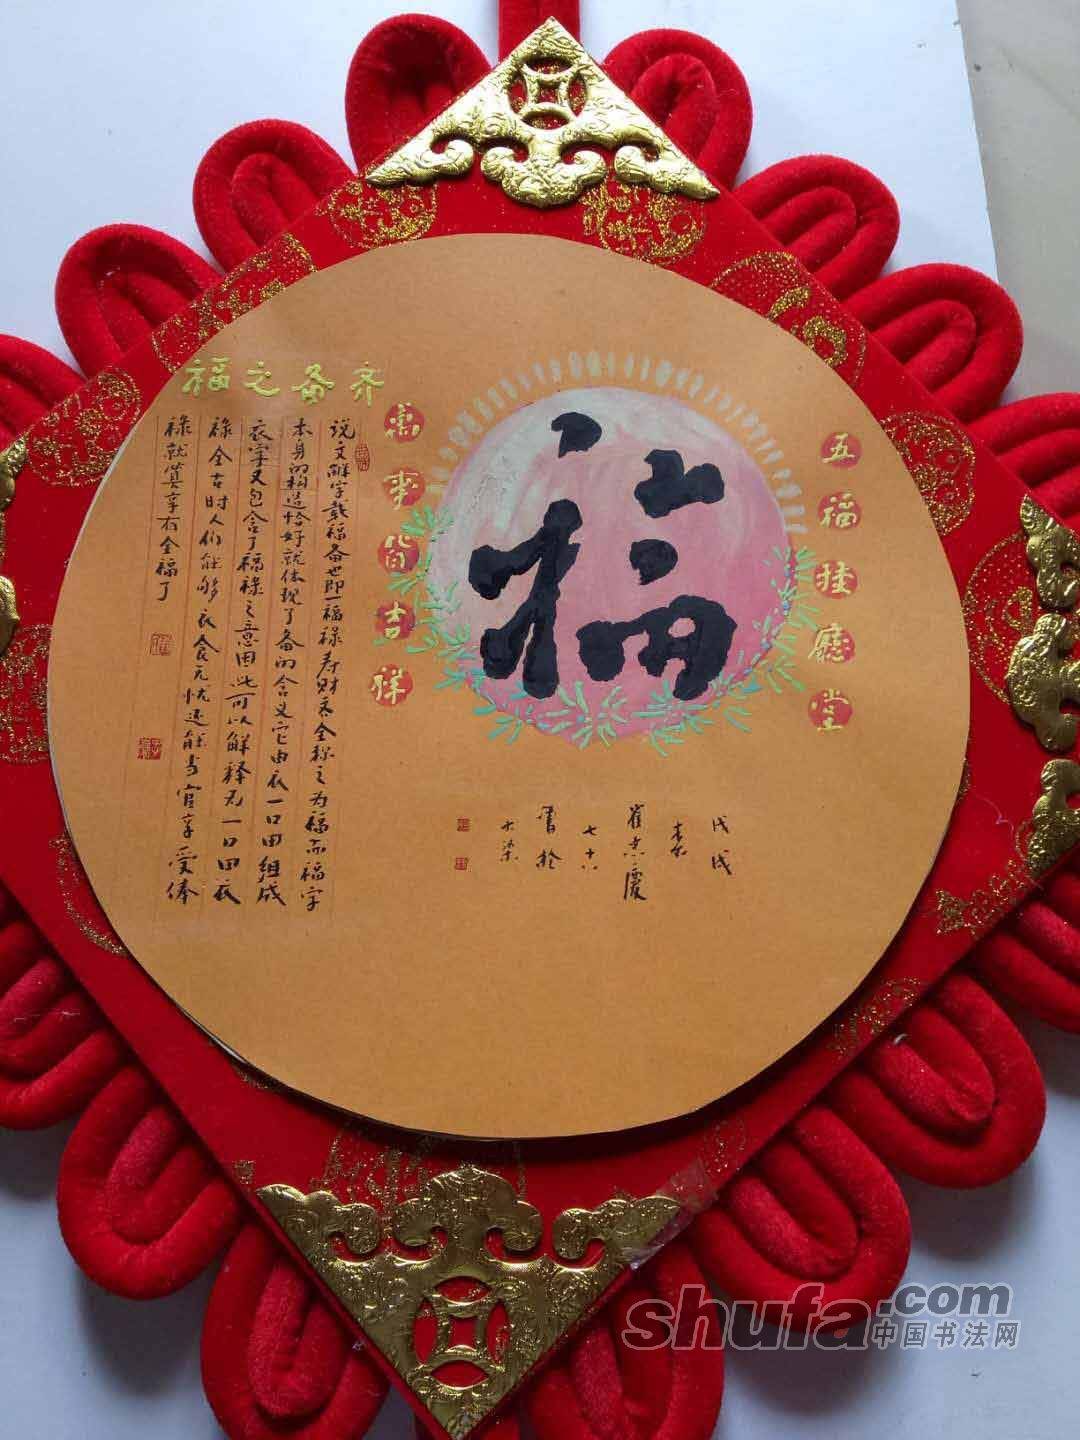 五福挂廳堂
福
万事皆吉祥
齐备之福
说文解字载福备也即一福禄寿财齐全称之为福而福字
本身的构造恰好就体现了备的含义它由衣一口田组成
衣字又包含了福禄之意因此可以解释为一口田衣
禄全古时人们能够衣食无忧还能当官享受俸
禄就算享有全福了
戊戌
春
崔志慶
七十六
書於
大梁
shufa.com
中国书法网